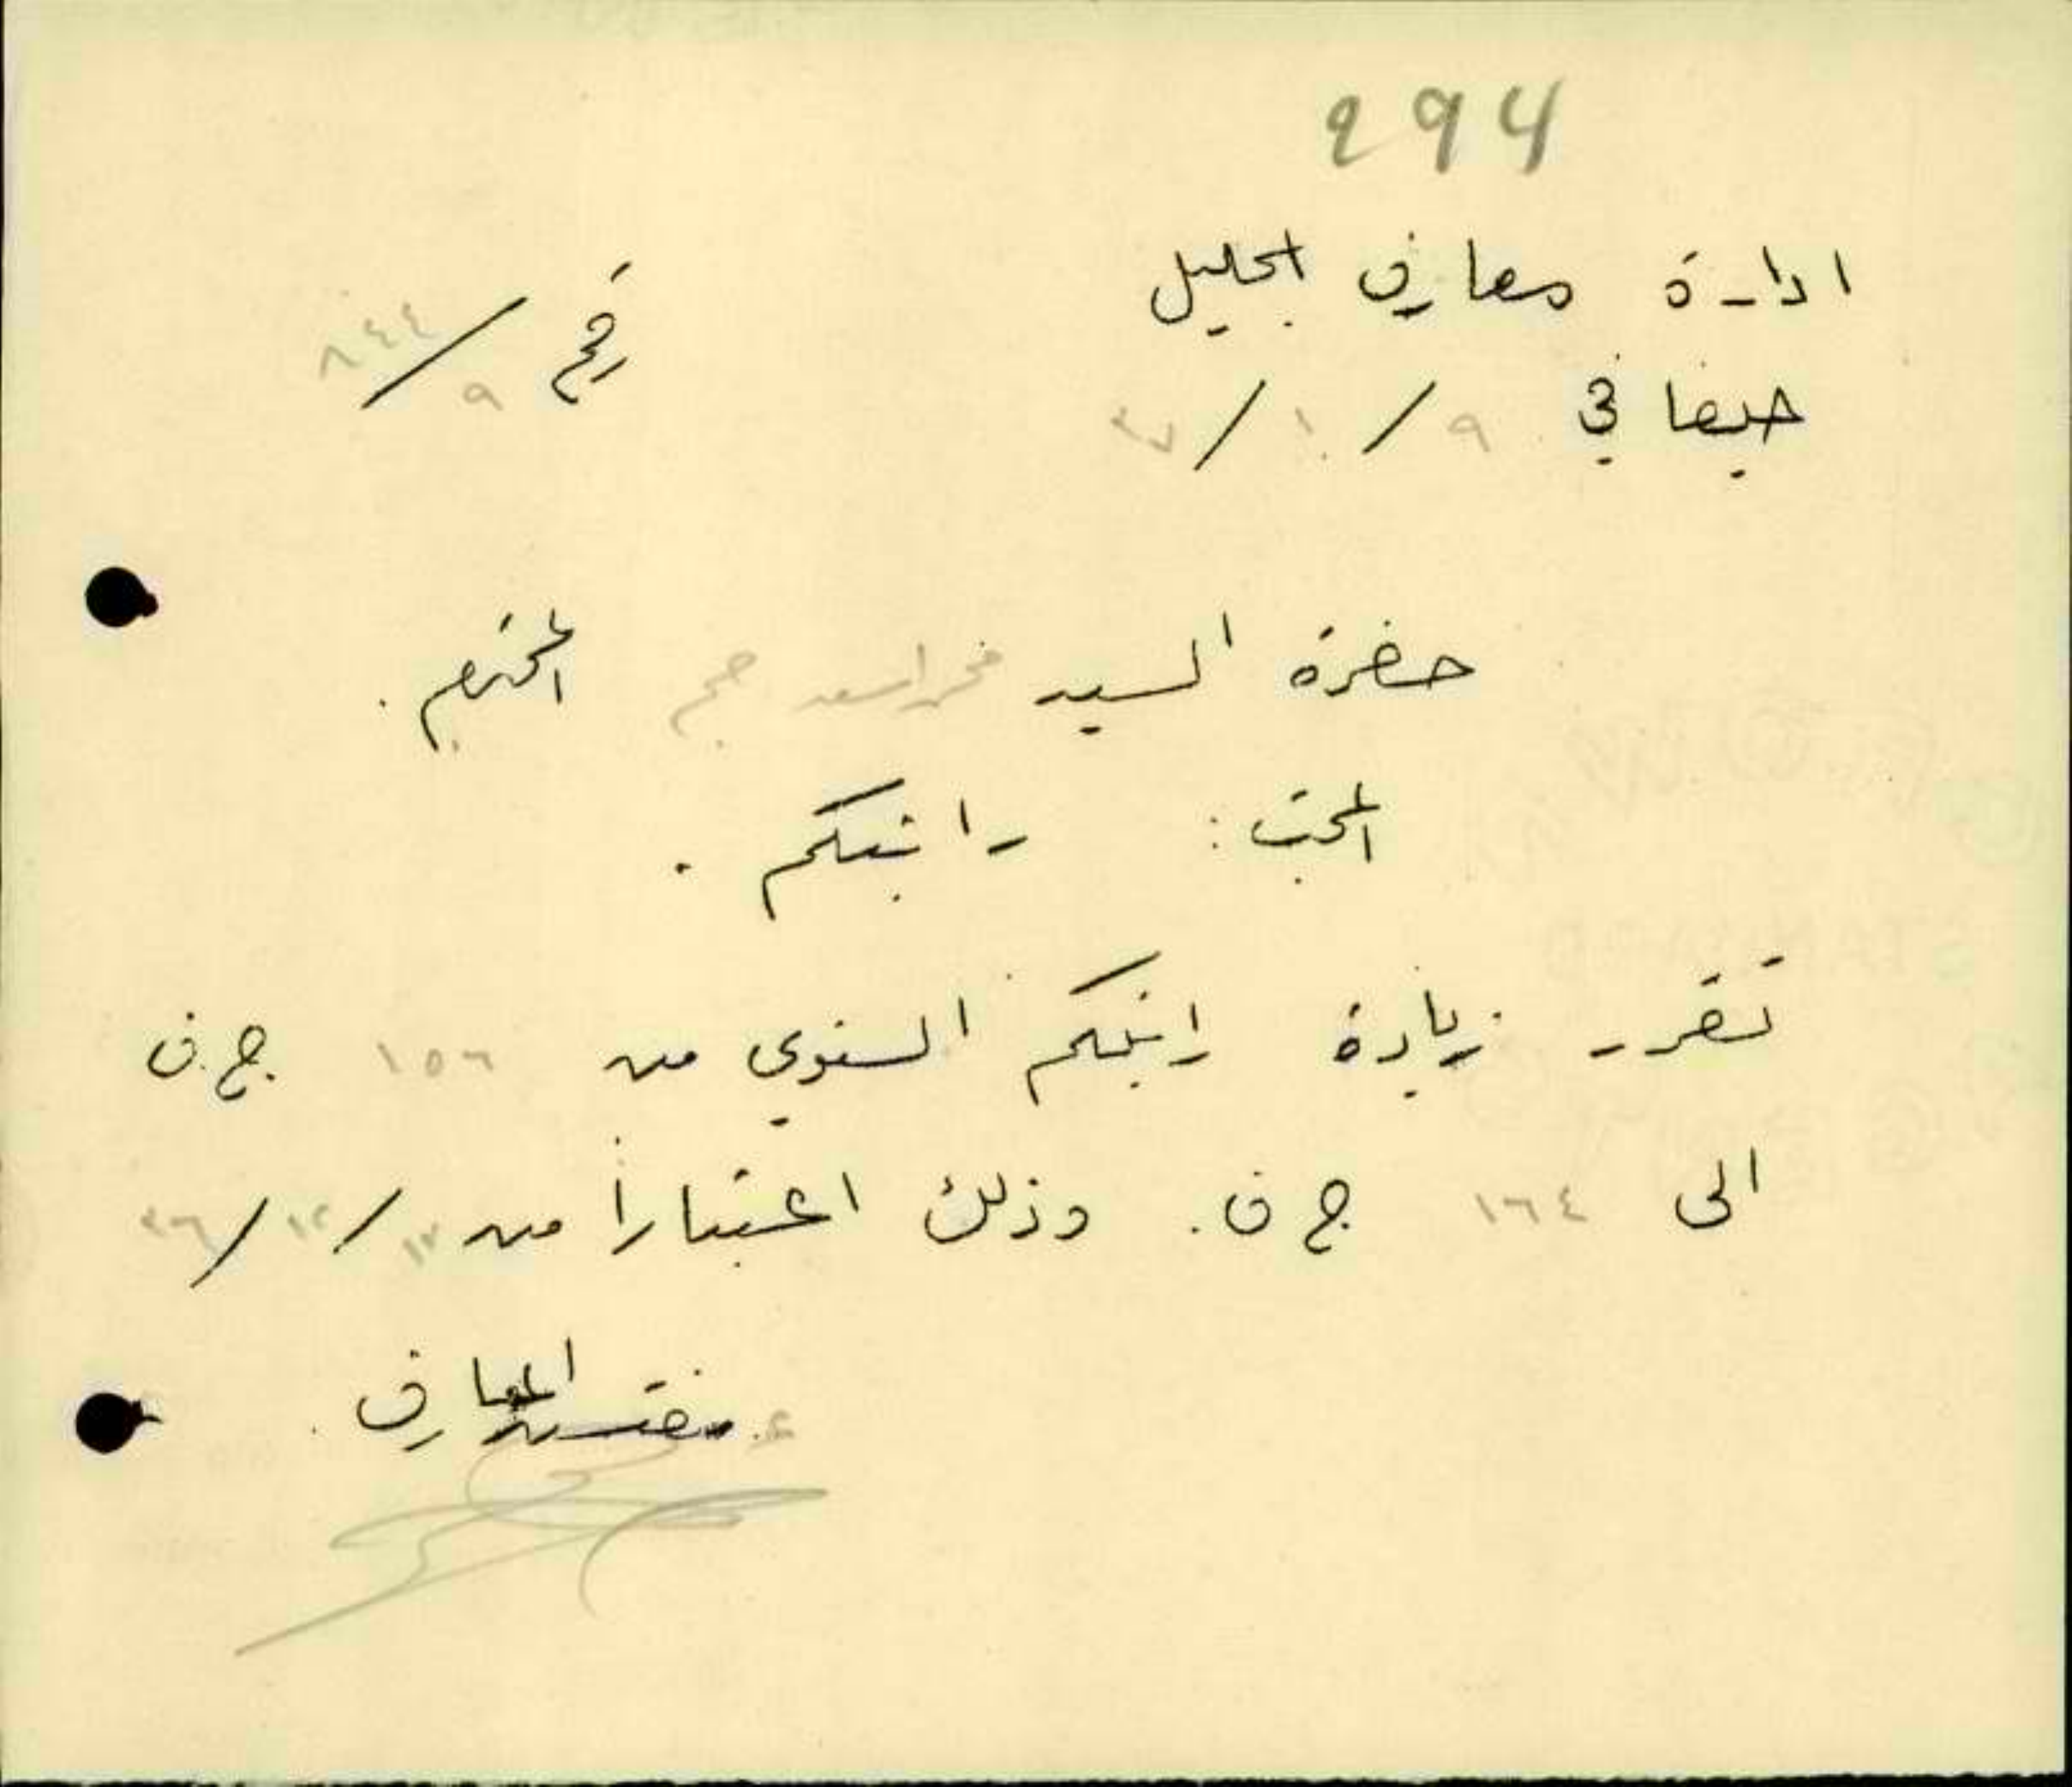 294
ادارة معارف الجليل
رقم ٨٤٤/٩
حيفا في ٩/١/٣٧
حضرة السيد محمد اسعد المحترم.
المبحث: راتبكم.
تقرر زيادة راتبكم السنوي من ١٥٦ ج.ف
الى ١٦٤ ج ف. وذلك اعتباراً من ١٧/١٢/٣٦
ع. مفتش المعارف.